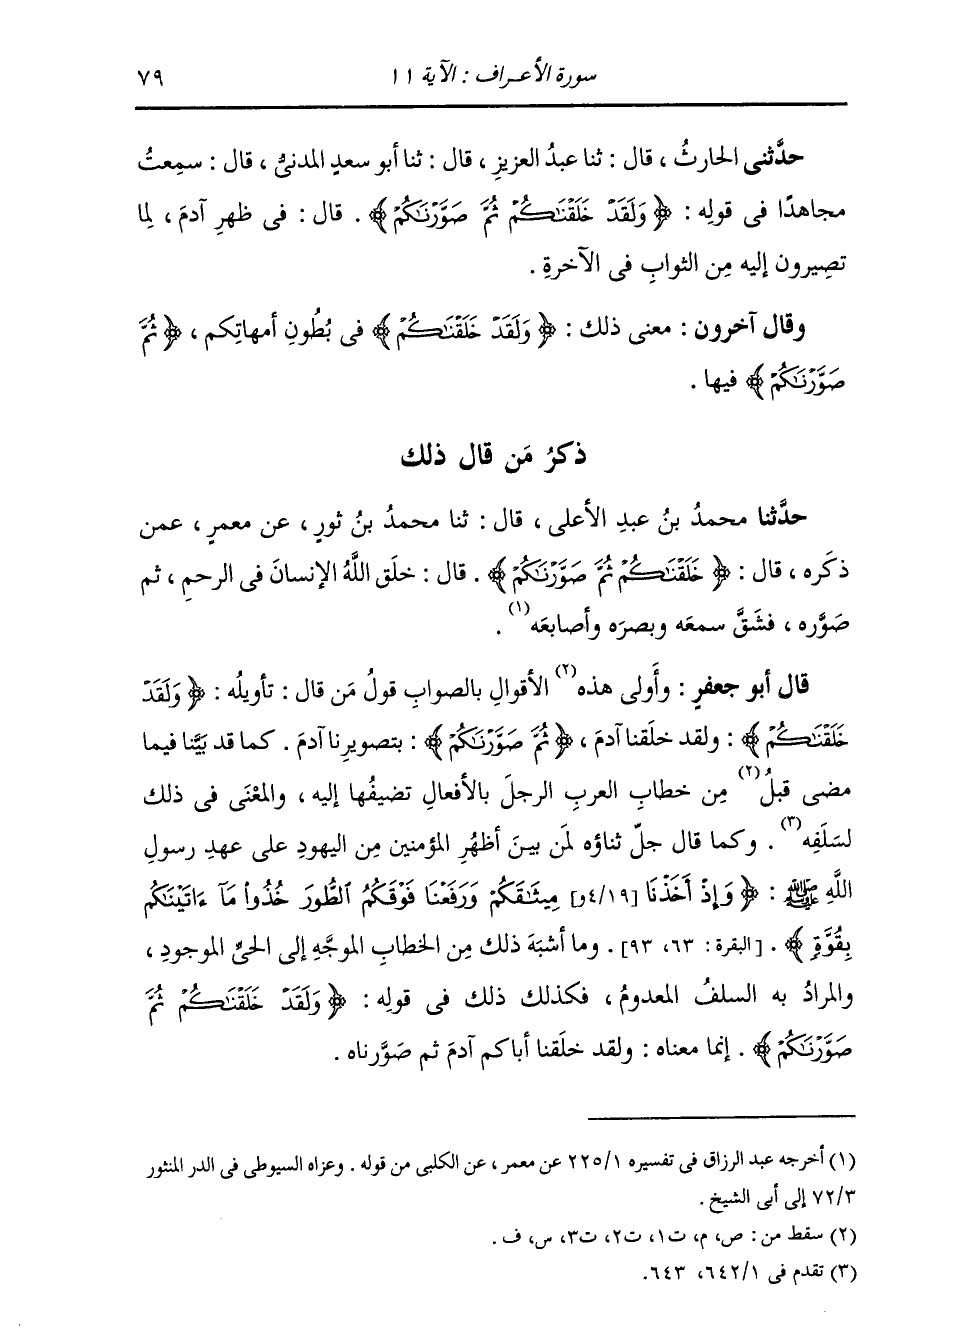 سورة الأعراف : الآية ١١ ٧٩
حدَّثنى الحارثُ ، قال : ثنا عبدُ العزيزِ ، قال : ثنا أبو سعدٍ المدنىُّ ، قال : سمِعتُ
مجاهدًا فى قولِه : ﴿ وَلَقَدْ خَلَقْنَٰكُمْ ثُمَّ صَوَّرْنَٰكُمْ ﴾ . قال : فى ظهرِ آدمَ ، لِما
تصِيرون إليه مِن الثوابِ فى الآخرةِ .
وقال آخرون : معنى ذلك : ﴿ وَلَقَدْ خَلَقْنَٰكُمْ ﴾ فى بُطُونِ أمهاتِكم ، ﴿ ثُمَّ
صَوَّرْنَٰكُمْ ﴾ فيها .
ذكرُ مَن قال ذلك
حدَّثنا محمدُ بنُ عبدِ الأعلى ، قال : ثنا محمدُ بنُ ثورٍ ، عن معمرٍ ، عمن
ذكَره ، قال : ﴿ خَلَقْنَٰكُمْ ثُمَّ صَوَّرْنَٰكُمْ ﴾ . قال : خلَق اللَّهُ الإنسانَ فى الرحمِ ، ثم
صَوَّره ، فشَقَّ سمعَه وبصرَه وأصابعَه (١) .
قال أبو جعفرٍ : وأَولى هذه (٢) الأقوالِ بالصوابِ قولُ مَن قال : تأويلُه : ﴿ وَلَقَدْ
خَلَقْنَٰكُمْ ﴾ : ولقد خلَقنا آدمَ ، ﴿ ثُمَّ صَوَّرْنَٰكُمْ ﴾ : بتصويرِنا آدمَ . كما قد بيَّنا فيما
مضى قبلُ (٢) مِن خطابِ العربِ الرجلَ بالأفعالِ تضيفُها إليه ، والمعْنَى فى ذلك
لسَلَفِه (٣) . وكما قال جلّ ثناؤه لمَن بينَ أظهُرِ المؤمنين مِن اليهودِ على عهدِ رسولِ
اللَّهِ ﷺ : ﴿ وَإِذْ أَخَذْنَا [٤/١٩و] مِيثَٰقَكُمْ وَرَفَعْنَا فَوْقَكُمُ ٱلطُّورَ خُذُوا۟ مَآ ءَاتَيْنَٰكُم
بِقُوَّةٍ ﴾ . [البقرة : ٦٣، ٩٣] . وما أشبَهَ ذلك مِن الخطابِ الموجَّهِ إلى الحىِّ الموجودِ ،
والمرادُ به السلفُ المعدومُ ، فكذلك ذلك فى قولِه : ﴿ وَلَقَدْ خَلَقْنَٰكُمْ ثُمَّ
صَوَّرْنَٰكُمْ ﴾ . إنما معناه : ولقد خلَقنا أباكم آدمَ ثم صَوَّرناه .
(١) أخرجه عبد الرزاق فى تفسيره ٢٢٥/١ عن معمر ، عن الكلبى من قوله . وعزاه السيوطى فى الدر المنثور
٧٢/٣ إلى أبى الشيخ .
(٢) سقط من : ص، م، ت١، ت٢، ت٣، س، ف .
(٣) تقدم فى ٦٤٢/١، ٦٤٣.